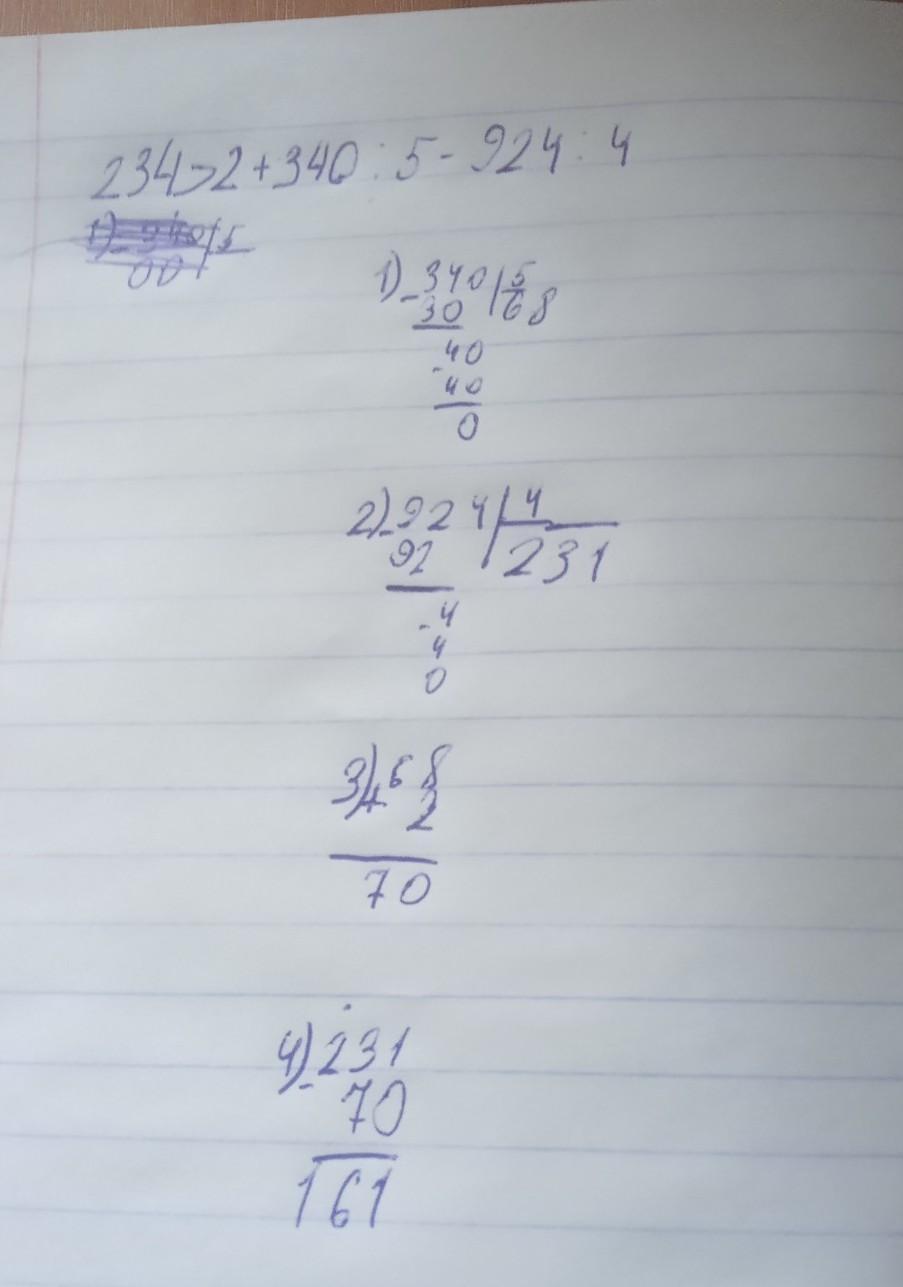 234>2+340:5-924:4
1)-340|5
00
1)-340|5
30 68
-40
40
0
2)-924|4
92 231
-4
4
0
3)+68
2
70
4)-231
70
161